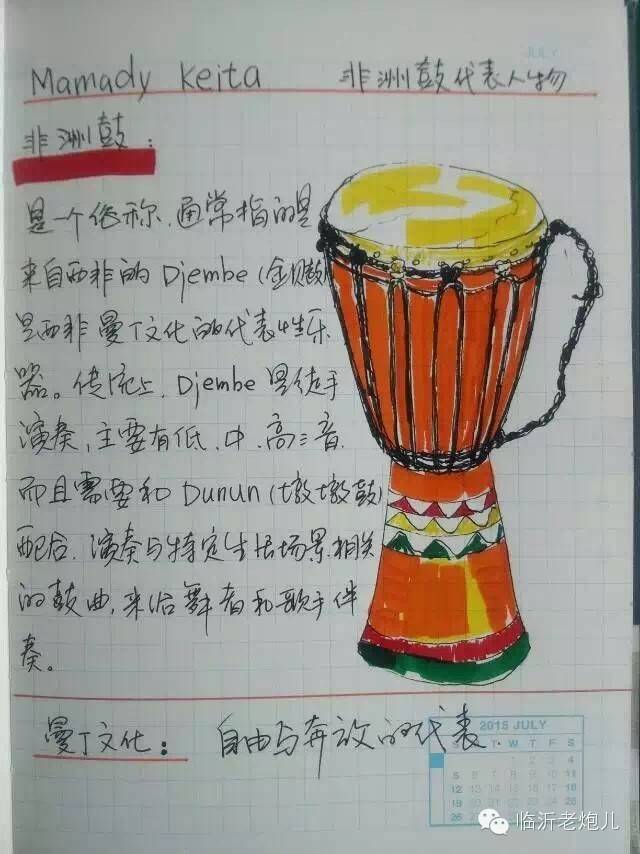 JULY
Mamady Keita 非洲鼓代表人物
非洲鼓：
是一个俗称、通常指的是
来自西非的 Djembe (金贝鼓)
是西非曼丁文化的代表性乐
器。传统上、Djembe 是徒手
演奏，主要有低、中、高三音，
而且需要和 Dunun (墩墩鼓)
配合．演奏与特定生活场景相关
的鼓曲，来给舞者和歌手伴
奏。
曼丁文化：自由与奔放的代表．
2015 JULY
S T W T F S
1 2 3 4
5 6 7 8 9 10 11
12 13 14 15 16 17 18
19 20 21 22 25
26
临沂老炮儿